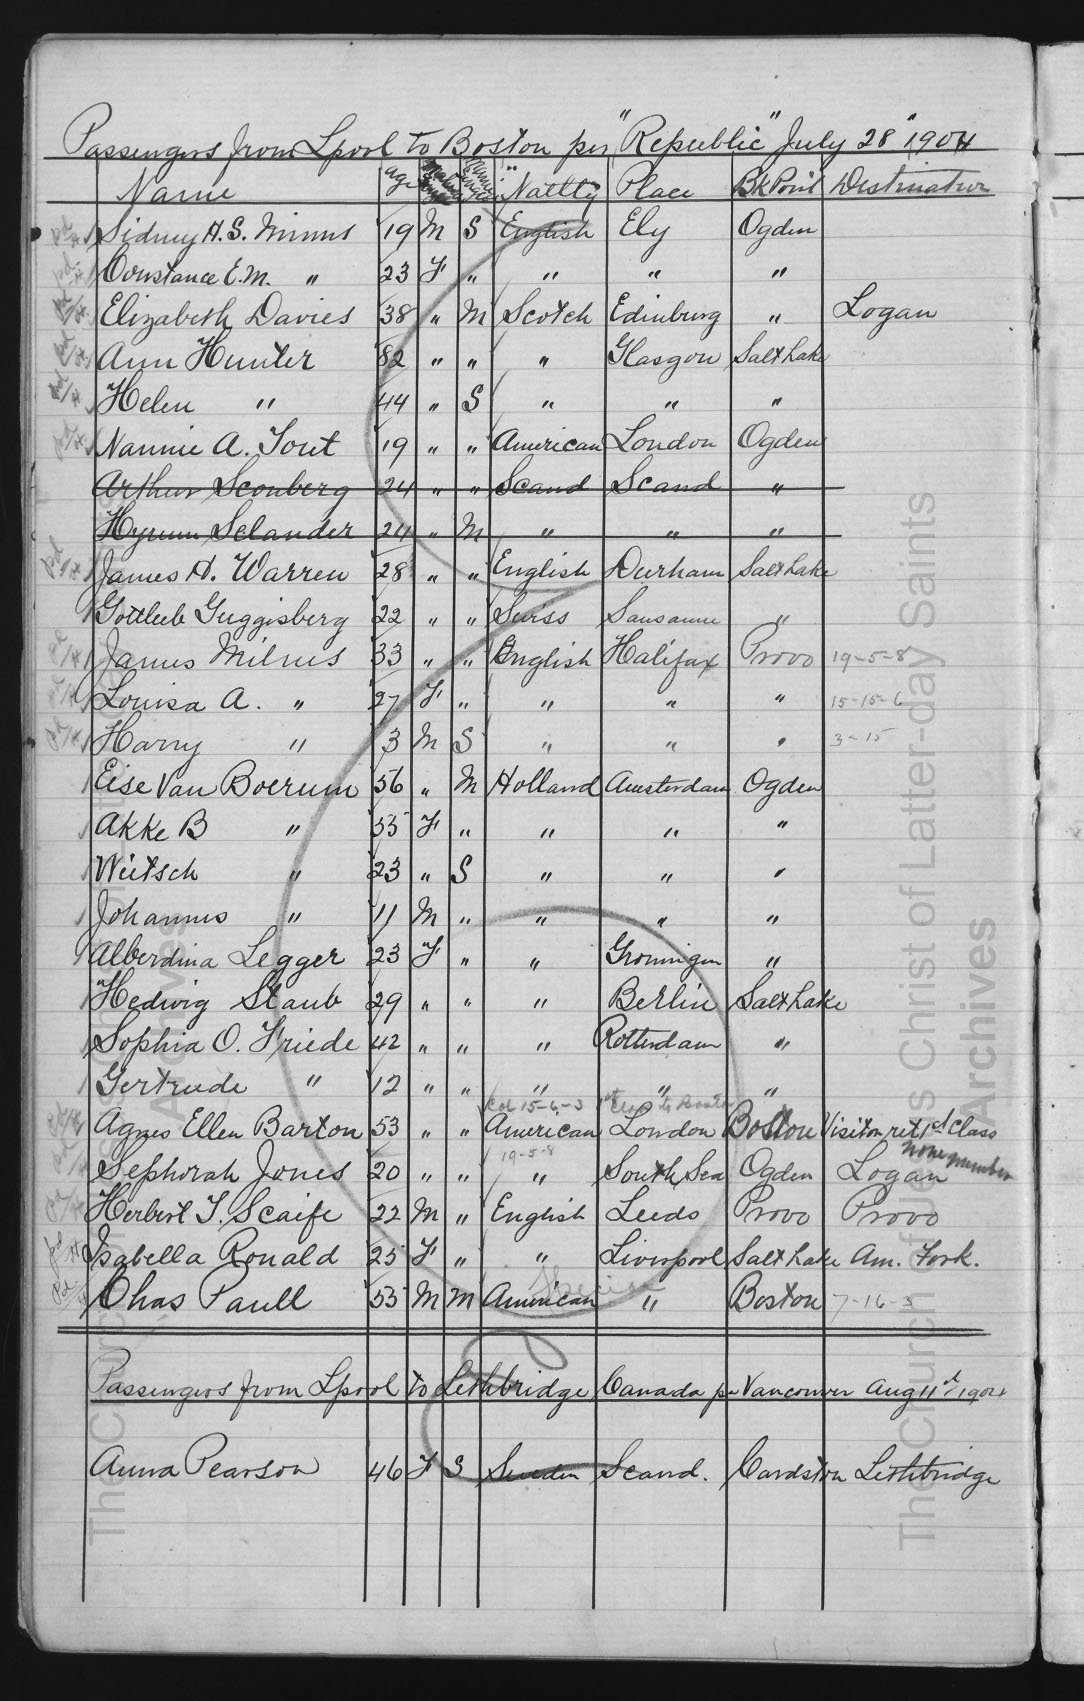 Passengers from Lpool to Boston per "Republic" July 28" 1904
Name Age Natlty Place Bk Point Destination
Sidney H. S. Mimms 19 M S English Ely Ogden
Constance E. M. " 23 F " " " "
Elizabeth Davies 38 " M Scotch Edinburg " Logan
Ann Hunter 82 " " " Glasgow Salt Lake
Helen " 44 " S " " "
Nannie A. Tout 19 " " American London Ogden
Arthur Sconberg 24 " " Scand Scand "
Hyrum Selander 24 " M " " "
James H. Warren 28 " " English Durham Salt Lake
Gottlieb Guggisberg 22 " " Swiss Lausanne "
James Milnes 33 " " English Halifax Provo 19-5-8
Louisa A. " 27 F " " " " 15-15-6
Harry " 3 M S " " " 3-15
Eise Van Boerum 56 " M Holland Amsterdam Ogden
Akke B " 55 F " " " "
Wietsch " 23 " S " " "
Johannes " 11 M " " " "
Alberdina Legger 23 F " " Groningen "
Hedwig Staub 29 " " " Berlin Salt Lake
Sophia O. Friede 42 " " " Rotterdam "
Gertrude " 12 " " " " "
15-6-3 to Boston
Agnes Ellen Barton 53 " " American London Boston Visitor ret 1st Class
19-5-8 none member
Sephorah Jones 20 " " " South Sea Ogden Logan
Herbert T. Scaife 22 M " English Leeds Provo Provo
Isabella Ronald 25 F " " Liverpool Salt Lake Am. Fork.
Chas Paull 55 M M American " Boston 7-16-3
Passengers from Lpool to Lethbridge Canada pr Vancouver Aug 11th 1904
Anna Pearson 46 F S Sweden Scand. Cardston Lethbridge
The Church of Jesus Christ of Latter-day Saints
Archives